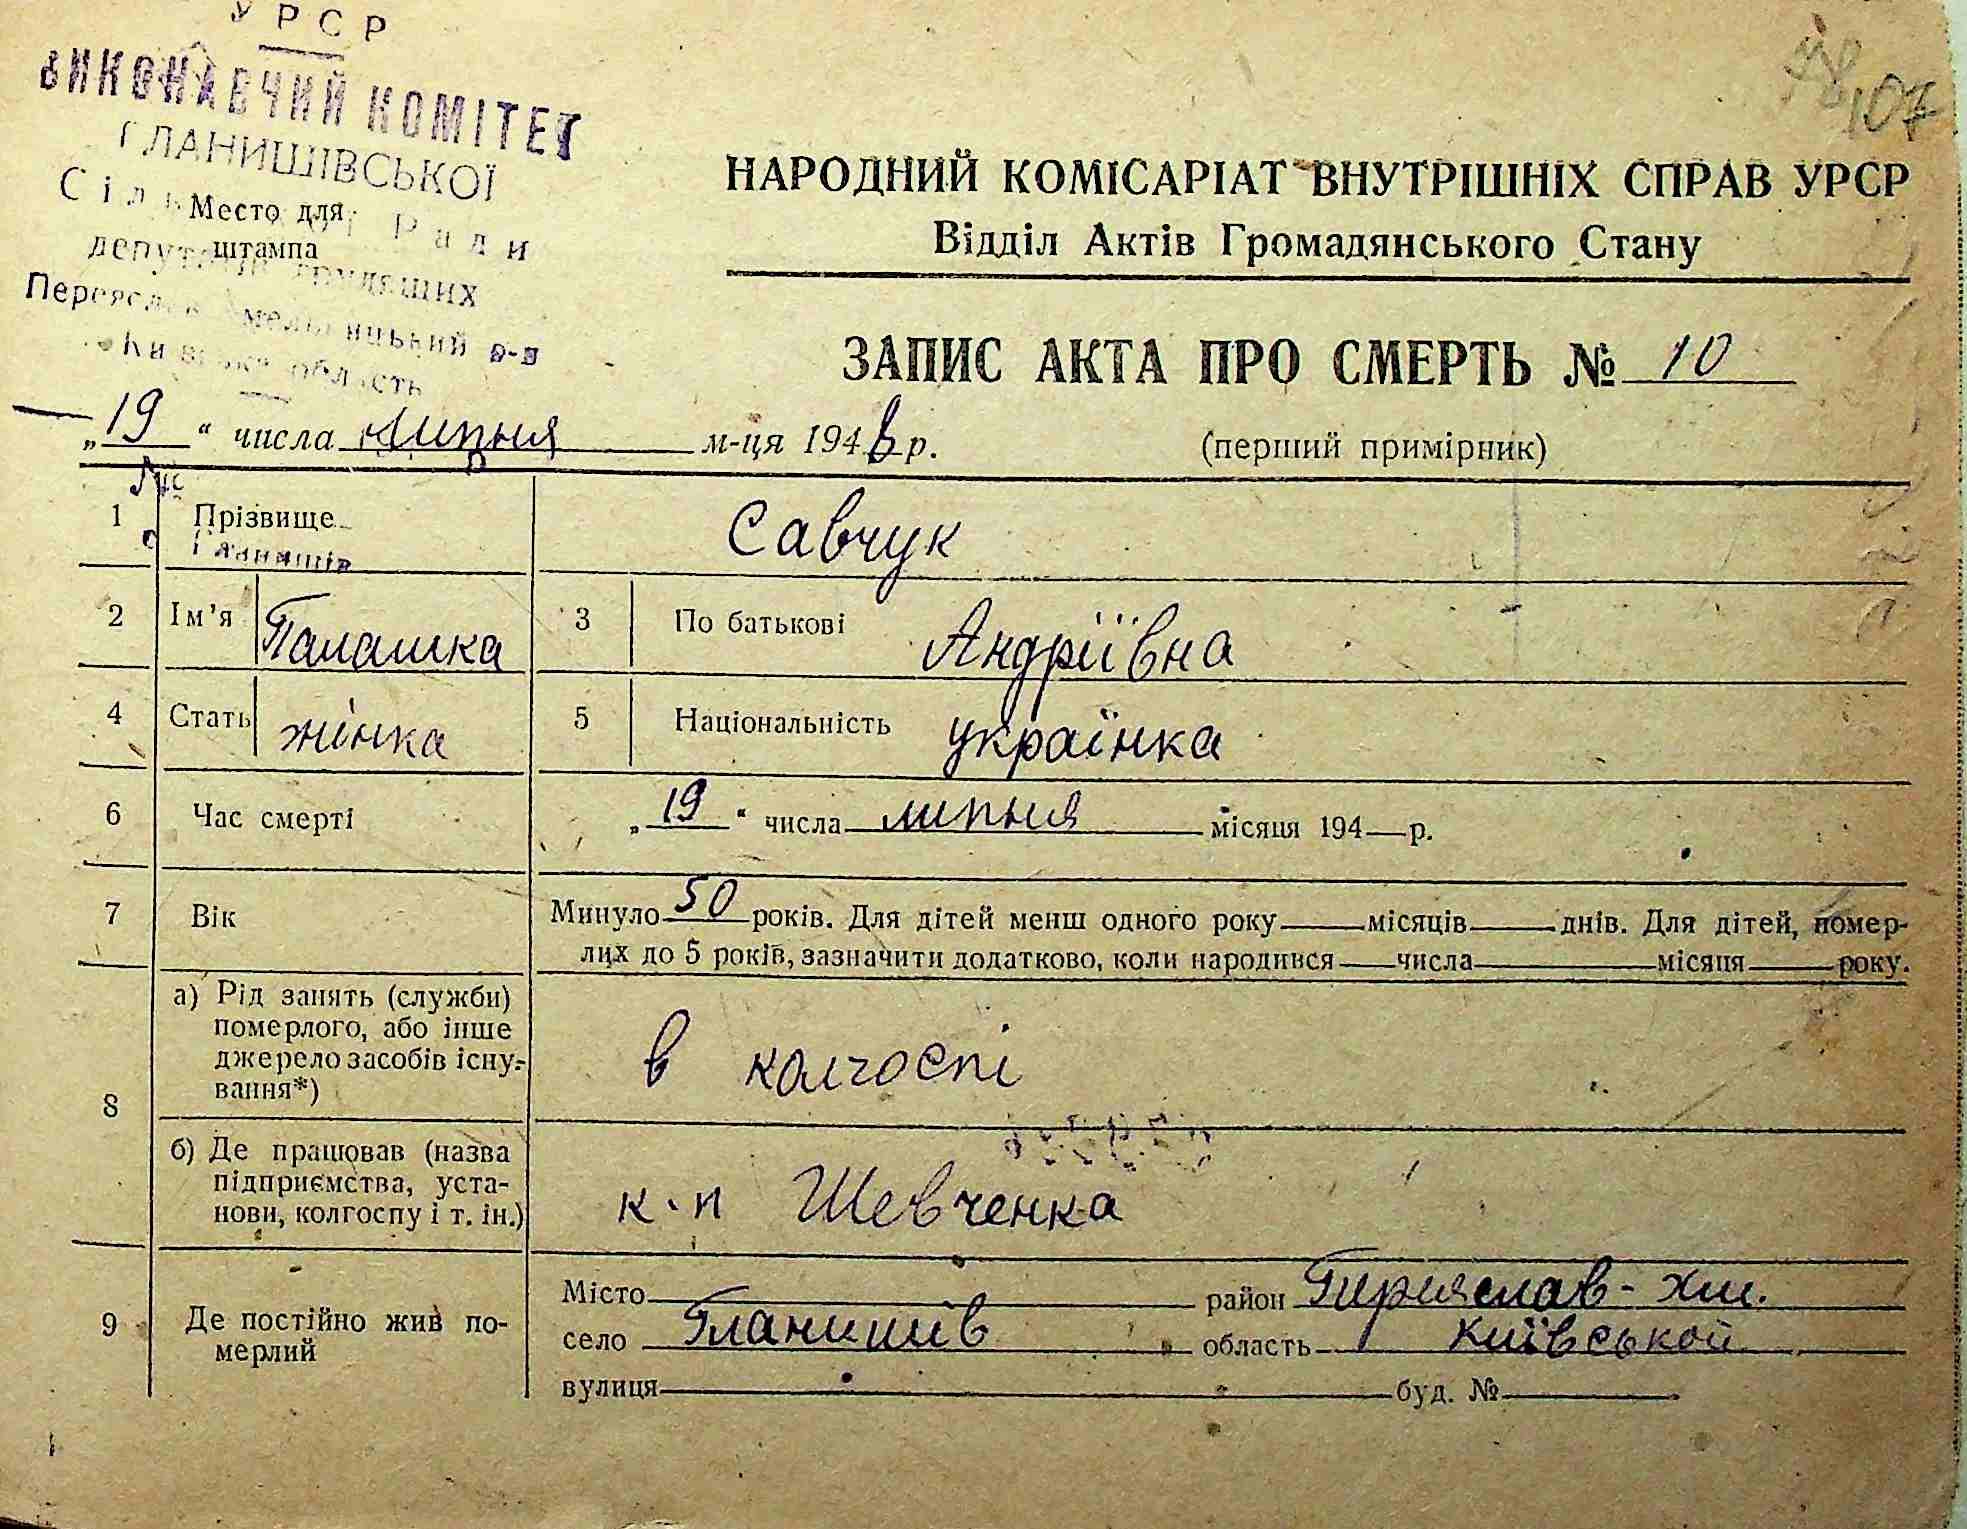 УРСР
ВИКОНАВЧИЙ КОМІТЕТ
ГЛАНИШІВСЬКОЇ
Ради
Место для
штампа
депутатів трудящих
Переяслав Хмельницький р-н
Київська область
107
НАРОДНИЙ КОМІСАРІАТ ВНУТРІШНІХ СПРАВ УРСР
Відділ Актів Громадянського Стану
ЗАПИС АКТА ПРО СМЕРТЬ № 10
„19“ числа липня м-ця 194 р.
(перший примірник)
1 Прізвище Савчук
Гланишів
2 Ім'я Палашка 3 По батькові Андріївна
4 Стать жінка 5 Національність українка
6 Час смерті „19“ числа липня місяця 194—р.
7 Вік Минуло 50 років. Для дітей менш одного року місяців днів. Для дітей, помер-
лих до 5 років, зазначити додатково, коли народився числа місяця року.
8 а) Рід занять (служби)
померлого, або інше
джерело засобів існу-
вання*)
в колгоспі
б) Де працював (назва
підприємства, уста-
нови, колгоспу і т. ін.)
к-п Шевченка
9 Де постійно жив по-
мерлий
Місто район Переяслав-хм.
село Гланишів область Київської
вулиця буд. №